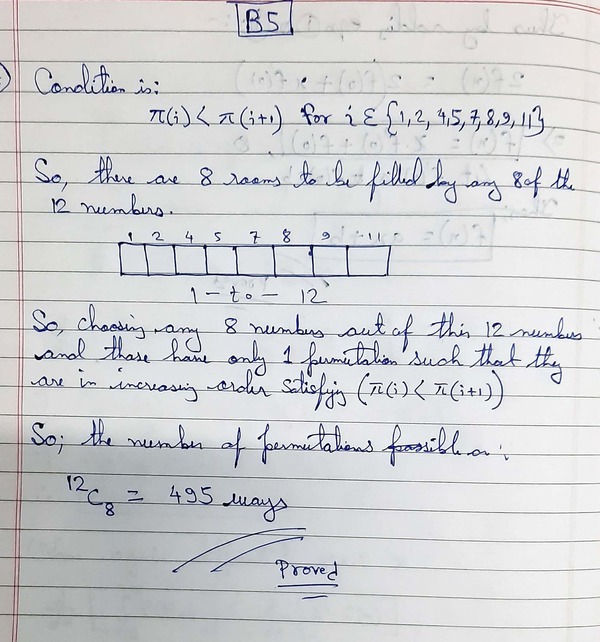 B5
Condition is:
π(i) < π(i+1) for i ε {1,2, 4,5, 7,8,9, 11}
So, there are 8 rooms to be filled by any 8 of the
12 numbers.
1 2 4 5 7 8 9 11
1 - to - 12
So, choosing any 8 numbers out of this 12 numbers
and those have only 1 permutation such that they
are in increasing order satisfying (π(i) < π(i+1))
So; the number of permutations possible are:
¹²C₈ = 495 ways
Proved